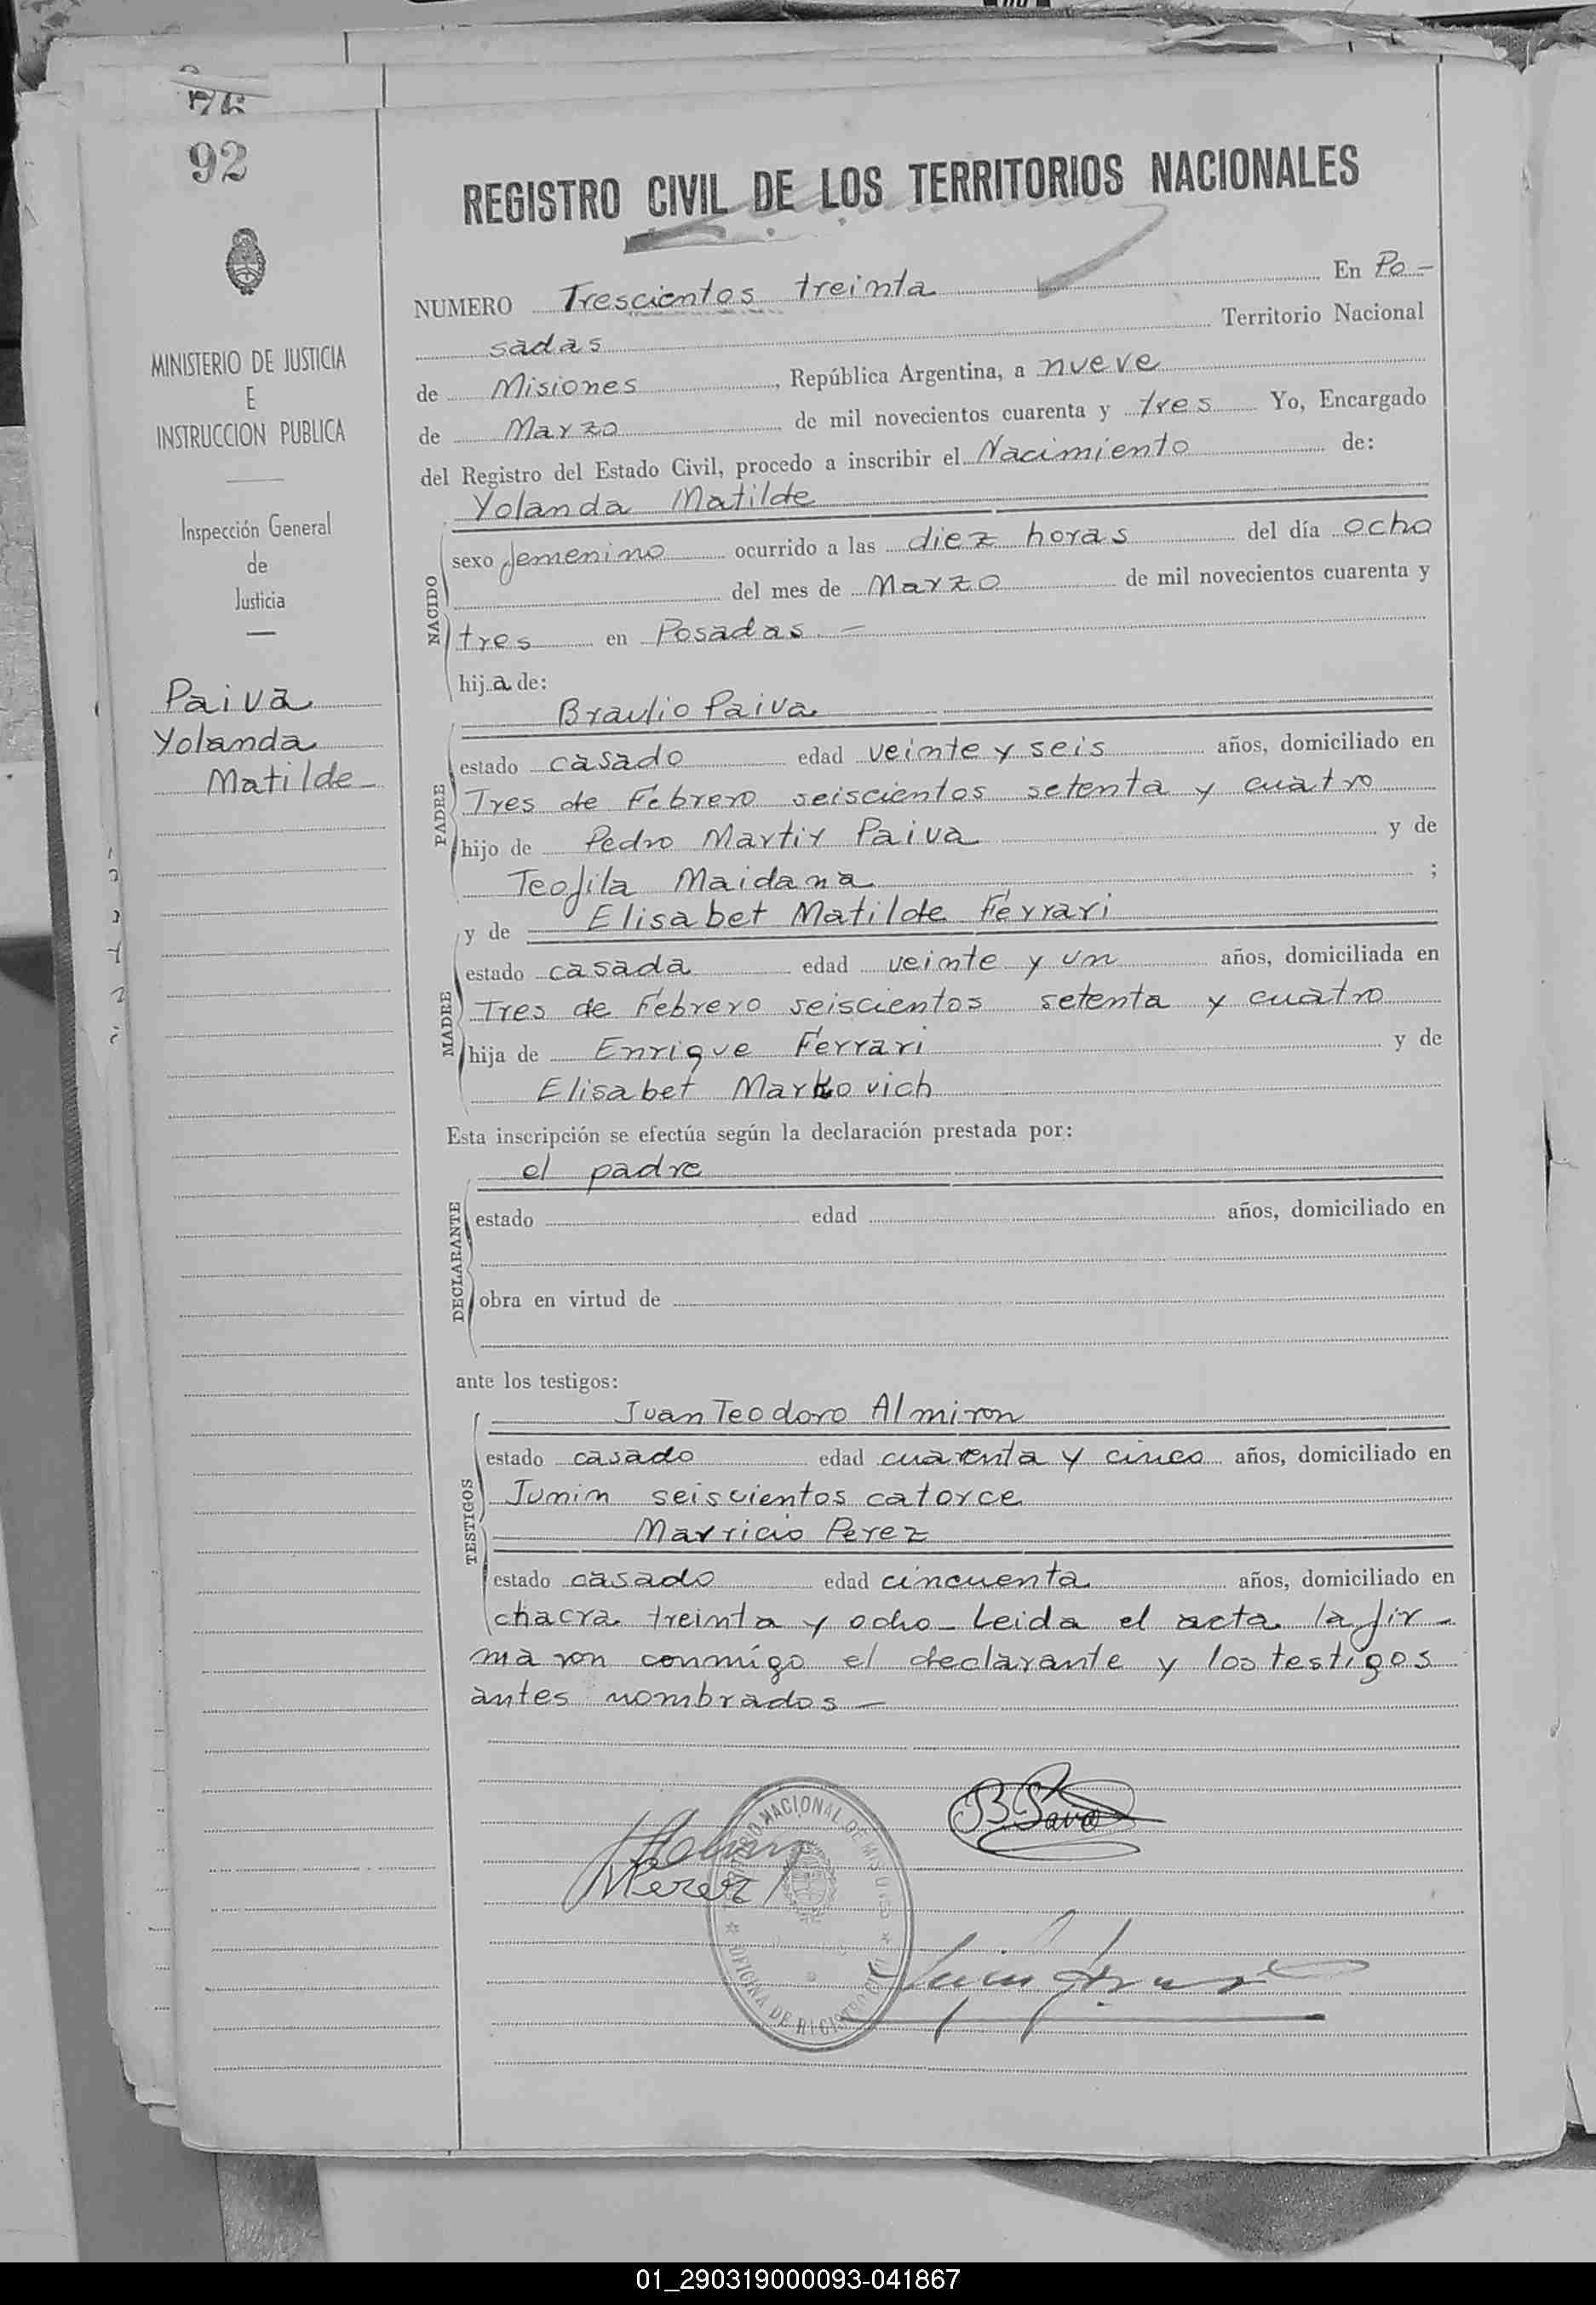 92
REGISTRO CIVIL DE LOS TERRITORIOS NACIONALES
MINISTERIO DE JUSTICIA
E
INSTRUCCION PUBLICA
Inspección General
de
Justicia
Paiva
Yolanda
Matilde
NUMERO Trescientos treinta En Po-
sadas Territorio Nacional
de Misiones, República Argentina, a nueve
de Marzo de mil novecientos cuarenta y tres Yo, Encargado
del Registro del Estado Civil, procedo a inscribir el Nacimiento de:
Yolanda Matilde
NACIDO
sexo femenino ocurrido a las diez horas del día ocho
del mes de Marzo de mil novecientos cuarenta y
tres en Posadas. —
hija de:
Braulio Paiva
PADRE
estado casado edad veinte y seis años, domiciliado en
Tres de Febrero seiscientos setenta y cuatro
hijo de Pedro Martir Paiva y de
Teofila Maidana ;
y de Elisabet Matilde Ferrari
MADRE
estado casada edad veinte y un años, domiciliada en
Tres de Febrero seiscientos setenta y cuatro
hija de Enrique Ferrari y de
Elisabet Markovich
Esta inscripción se efectúa según la declaración prestada por:
el padre
DECLARANTE
estado edad años, domiciliado en
obra en virtud de
ante los testigos:
Juan Teodoro Almiron
TESTIGOS
estado casado edad cuarenta y cinco años, domiciliado en
Junin seiscientos catorce
Mauricio Perez
estado casado edad cincuenta años, domiciliado en
chacra treinta y ocho - Leida el acta la fir-
maron conmigo el declarante y los testigos
antes nombrados —
B. Paiva
MPerez
NACIONAL DE MISIONES
OFICINA DE REGISTRO CIVIL
01_290319000093-041867